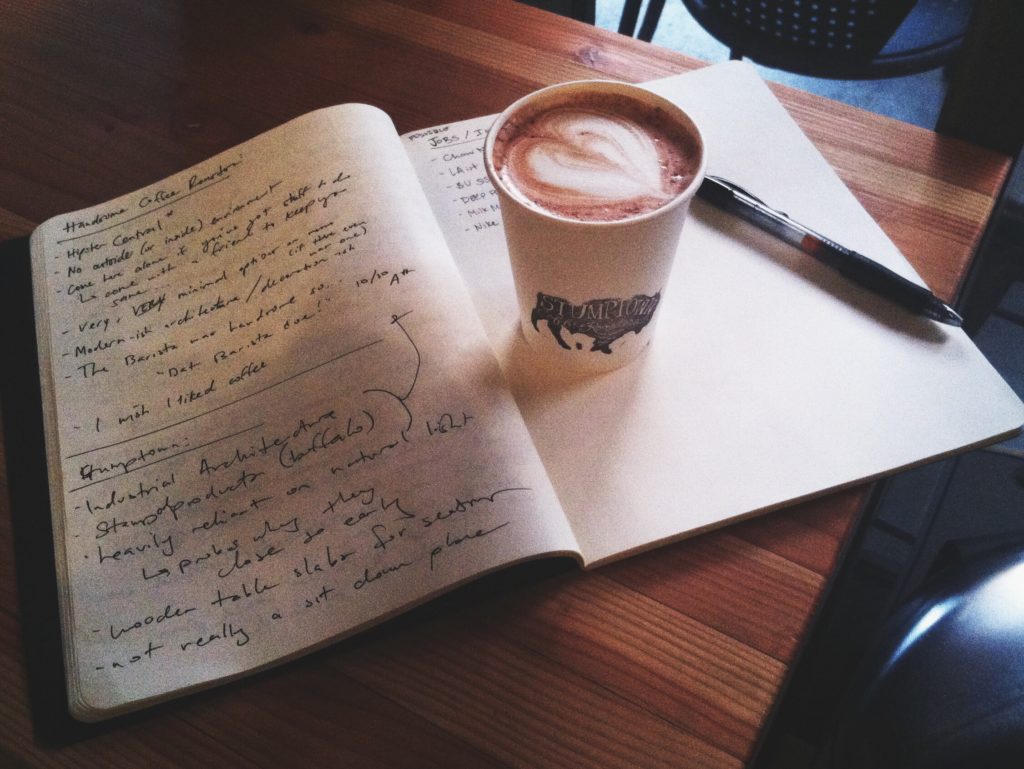 Handsome Coffee Roasters:
- Hipster Central*
- No outside (or inside) environment
- Come here alone if you've got stuff to do
↳ come with a friend to keep you
same.
- Very, VERY minimal options on menu
- Modern-ish architecture / decoration (it there even
one)
- The Barista was handsome so... 10/10
"Dat Barista doe!" A++
- I wish I liked coffee
Stumptown:
- Industrial Architecture
- Stamped products (buffalo)
- heavily reliant on natural light
↳ probs why they
close so early
- wooden table slabs for seating
- not really a sit down place
POSSIBLE
JOBS / In
- Chow
- LA
- SU
- DEEP
- Milk M
- Nike
STUMPTOWN